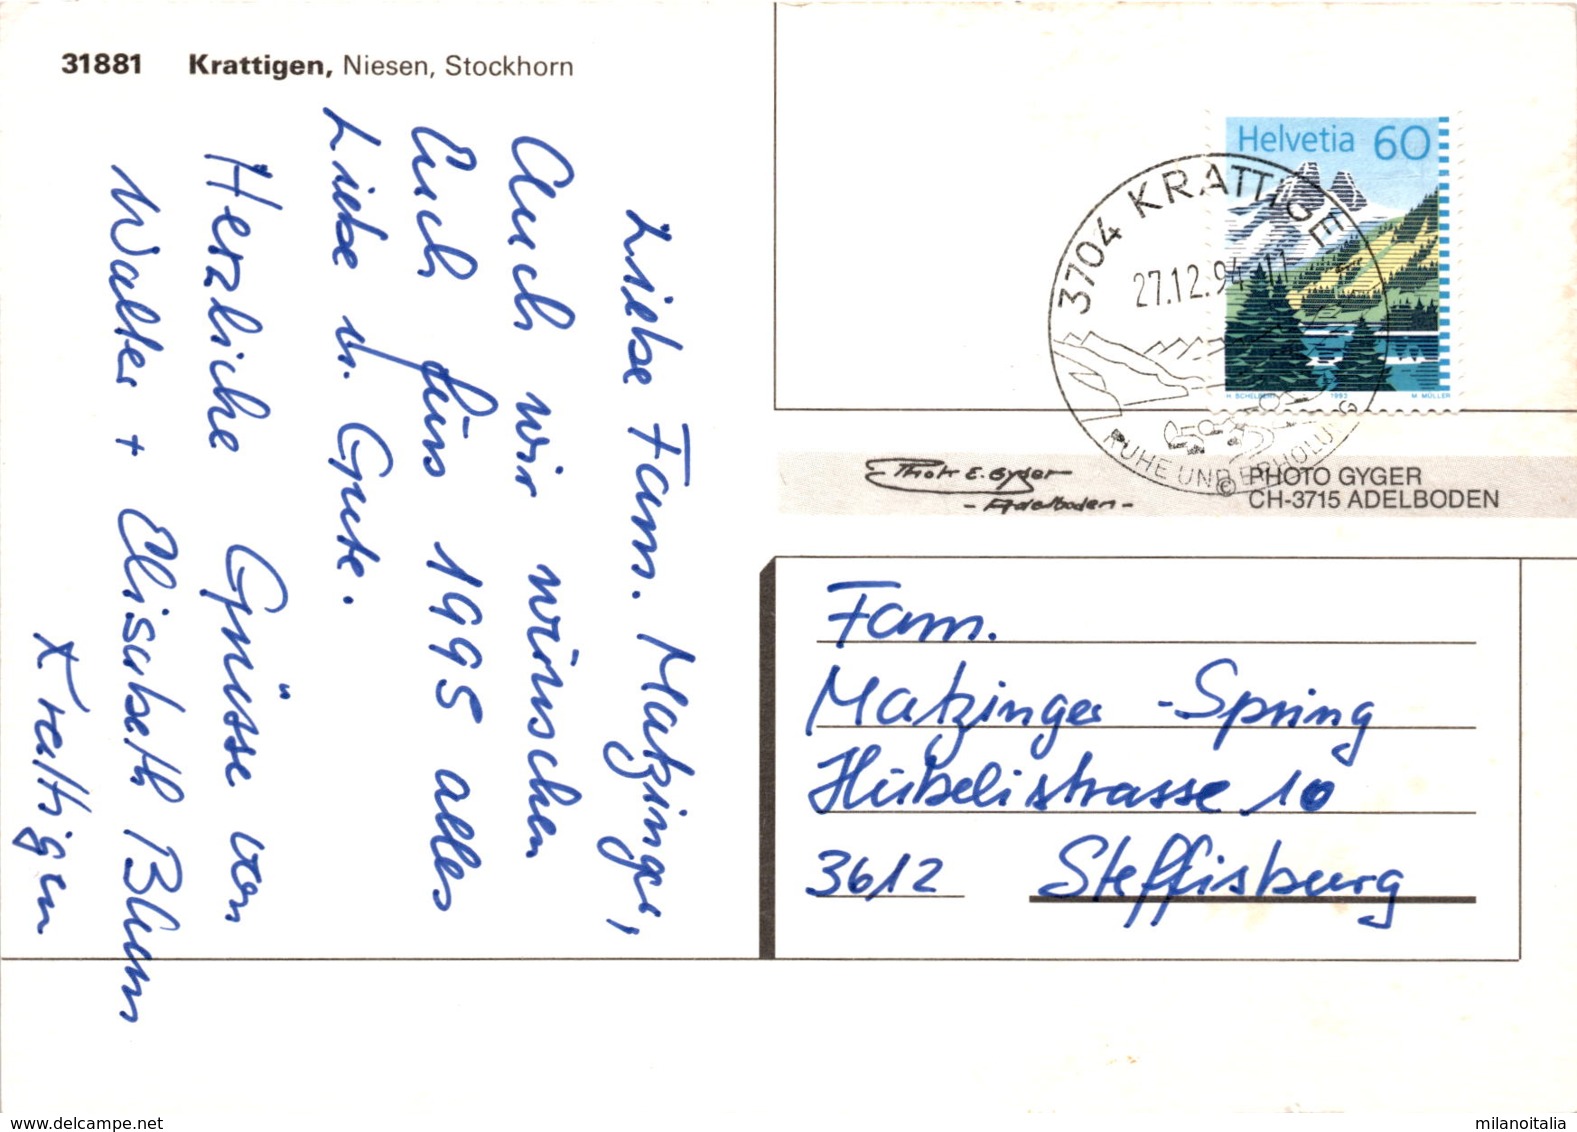 31881 Krattigen, Niesen, Stockhorn
Liebe Fam. Matzinger,
Auch wir wünschen
Euch fürs 1995 alles
Liebe u. Gute.
Herzliche Grüsse von
Walter + Elisabeth Blum
Krattigen
Helvetia 60
H SCHELBERT 1993 M MÜLLER
3704 KRATTIGE
27.12.94-11
RUHE UND ERHOLUNG
Photo E. Gyger
- Adelboden -
© PHOTO GYGER
CH-3715 ADELBODEN
Fam.
Matzinger-Spring
Hübelistrasse 10
3612 Steffisburg
www.delcampe.net
milanoitalia